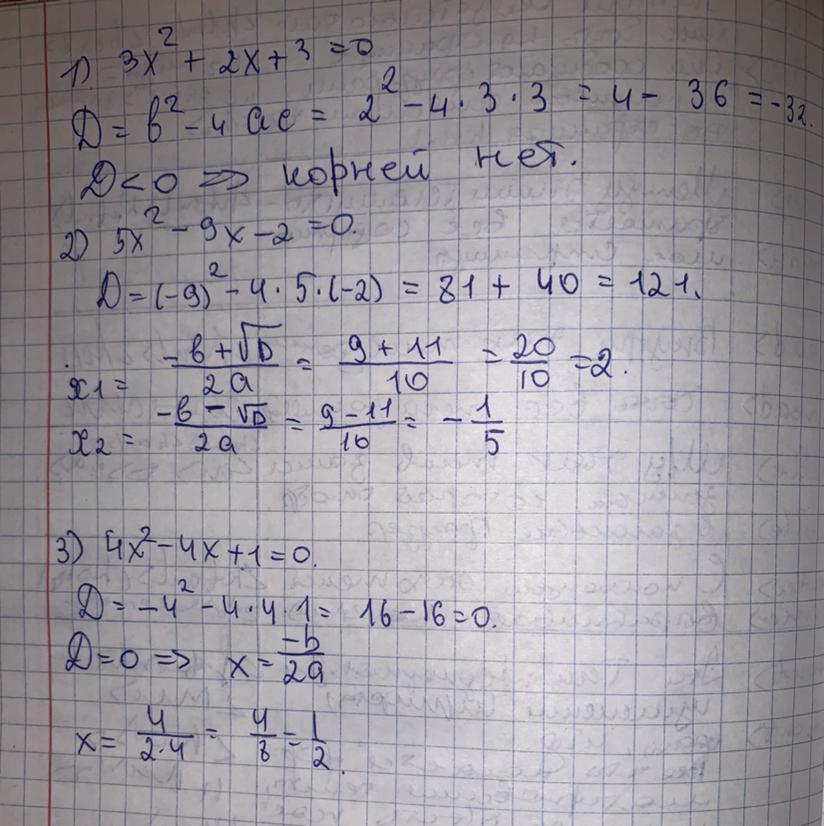 1) 3x² + 2x + 3 = 0
D = b² - 4ac = 2² - 4 · 3 · 3 = 4 - 36 = -32.
D < 0 => корней нет.
2) 5x² - 9x - 2 = 0.
D = (-9)² - 4 · 5 · (-2) = 81 + 40 = 121.
x₁ = (-b + √D)/2a = (9 + 11)/10 = 20/10 = 2.
x₂ = (-b - √D)/2a = (9 - 11)/10 = - 1/5
3) 4x² - 4x + 1 = 0.
D = -4² - 4 · 4 · 1 = 16 - 16 = 0.
D = 0 => x = -b/2a
x = 4/2·4 = 4/8 = 1/2.